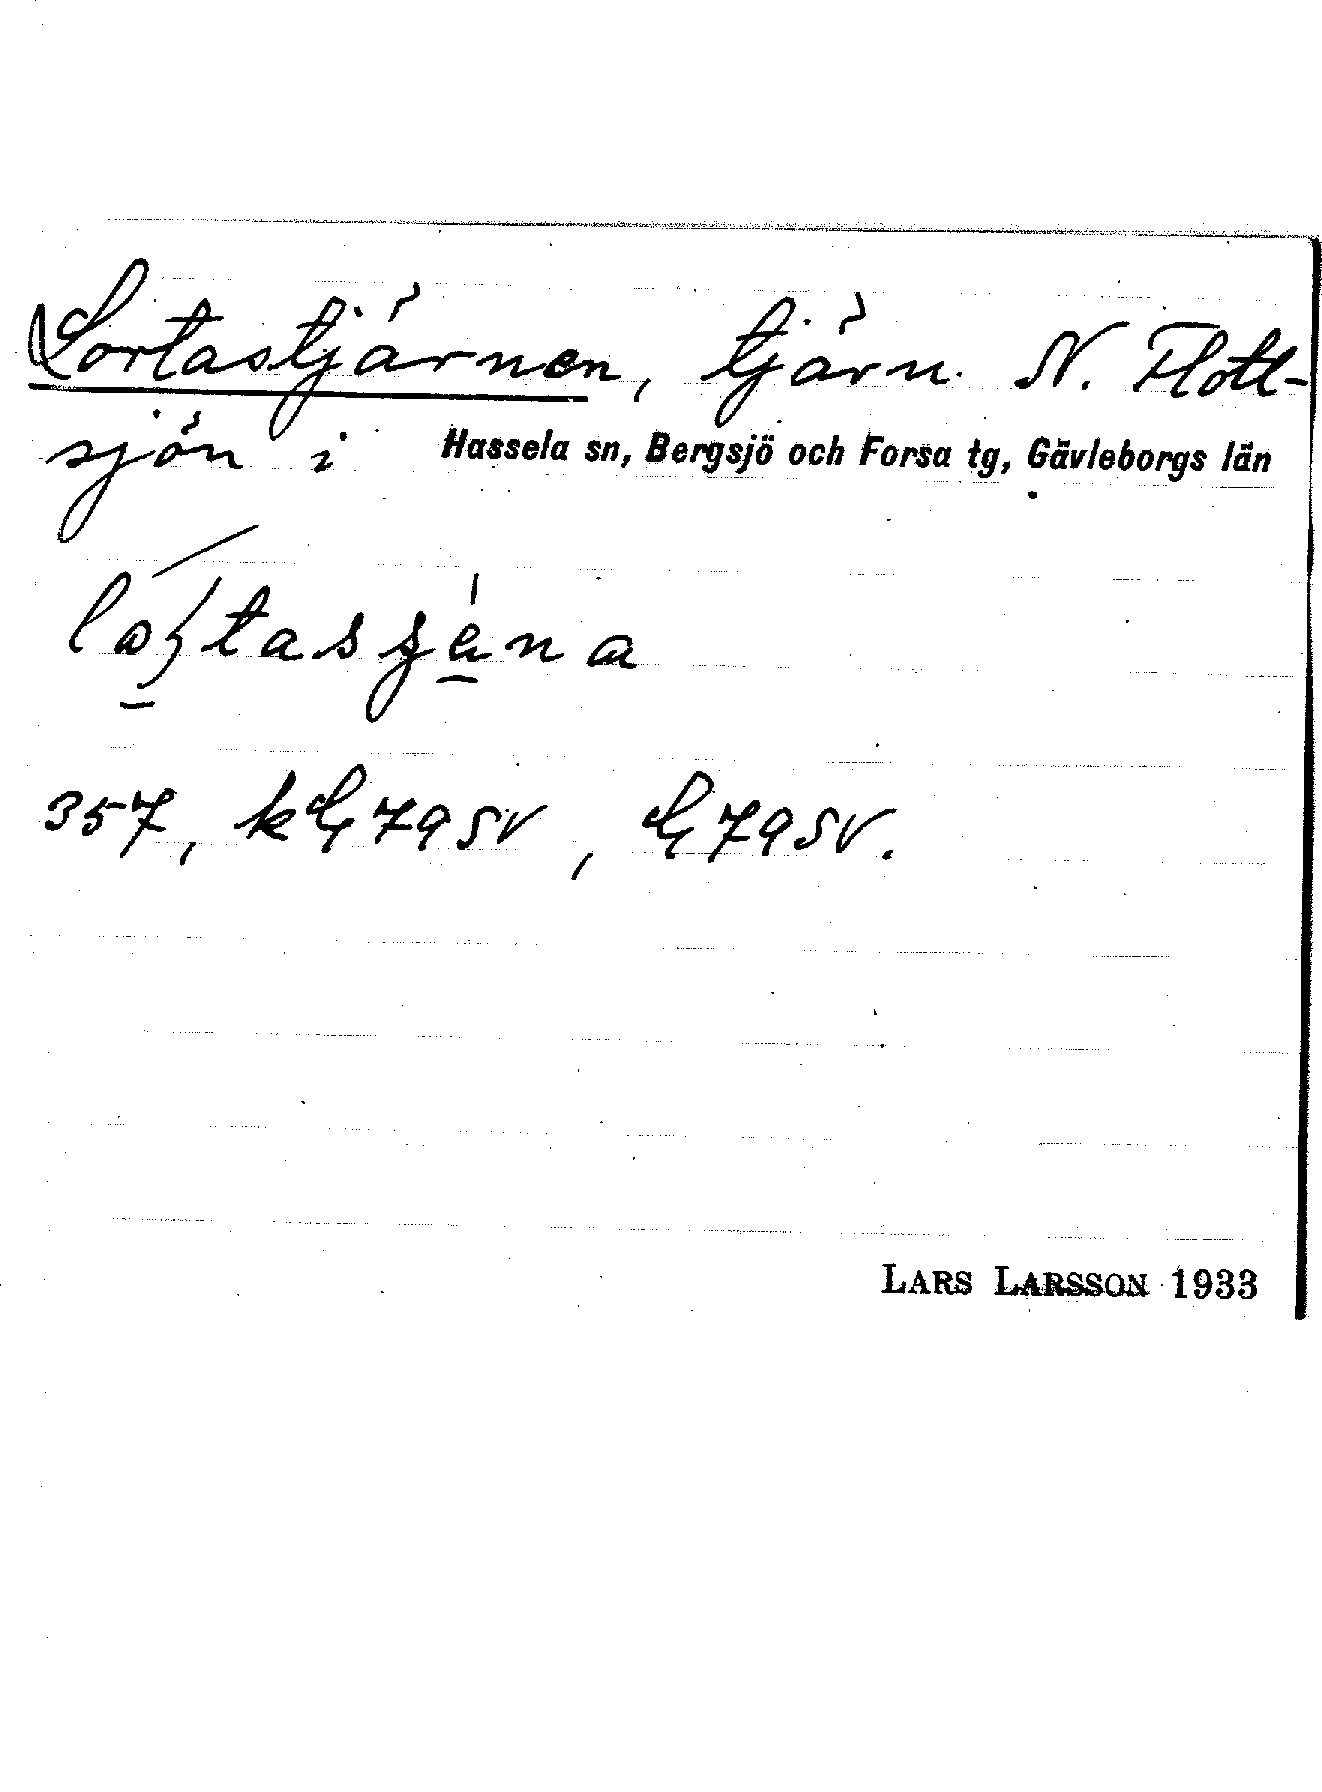 Lortastjärnen, tjärn N. Flott-
sjön i Hassela sn, Bergsjö och Forsa tg, Gävleborgs län
357, kG 79 SV, G 79 SV.
LARS LARSSON 1933